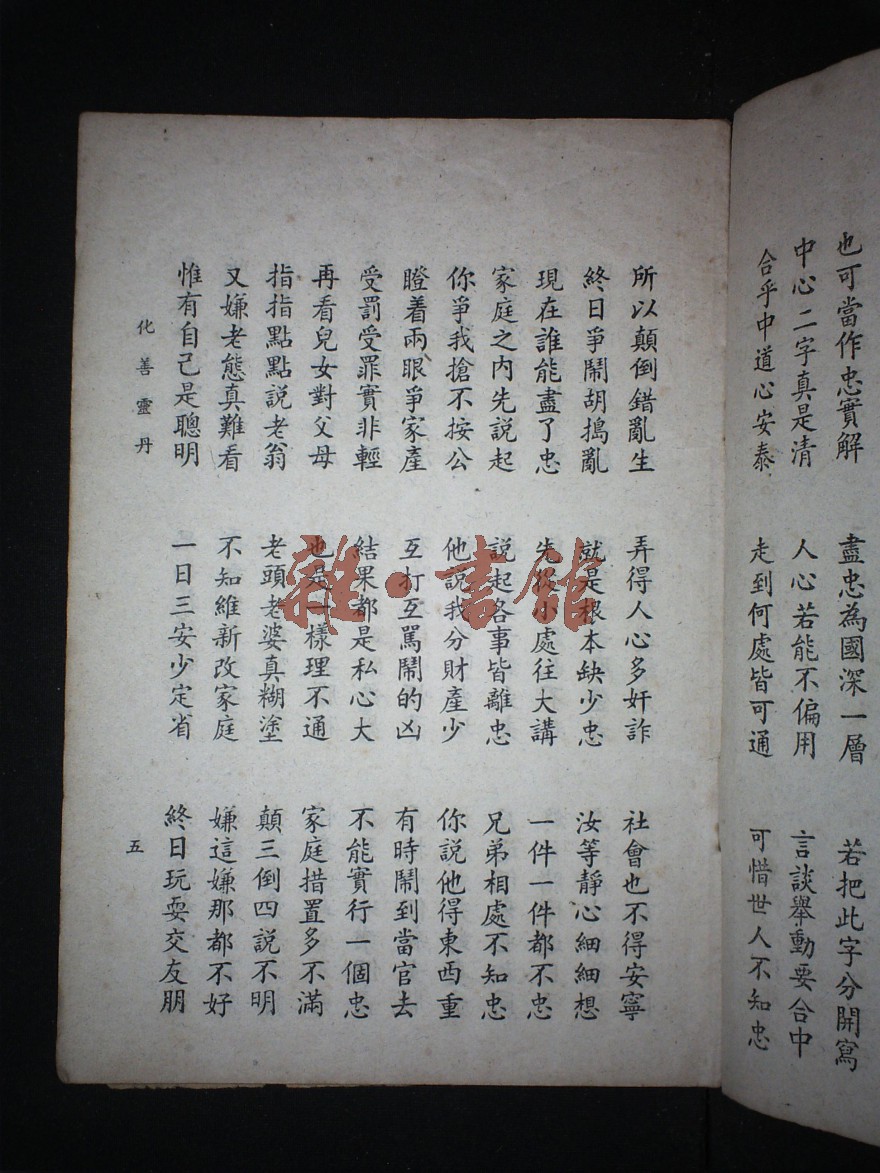 也可當作忠實解 盡忠為國深一層 若把此字分開寫
中心二字真是清 人心若能不偏用 言談舉動要合中
合乎中道心安泰 走到何處皆可通 可惜世人不知忠
所以顛倒錯亂生 弄得人心多奸詐 社會也不得安寧
終日爭鬧胡搗亂 就是根本缺少忠 汝等靜心細細想
現在誰能盡了忠 先從小處往大講 一件一件都不忠
家庭之內先說起 說起各事皆離忠 兄弟相處不知忠
你爭我搶不按公 他說我分財產少 你說他得東西重
瞪着兩眼爭家產 互打互罵鬧的凶 有時鬧到當官去
受罰受罪實非輕 結果都是私心大 不能實行一個忠
再看兒女對父母 也是一樣理不通 家庭措置多不滿
指指點點說老翁 老頭老婆真糊塗 顛三倒四說不明
又嫌老態真難看 不知維新改家庭 嫌這嫌那都不好
惟有自己是聰明 一日三安少定省 終日玩耍交友朋
化善靈丹
五
雜·書館